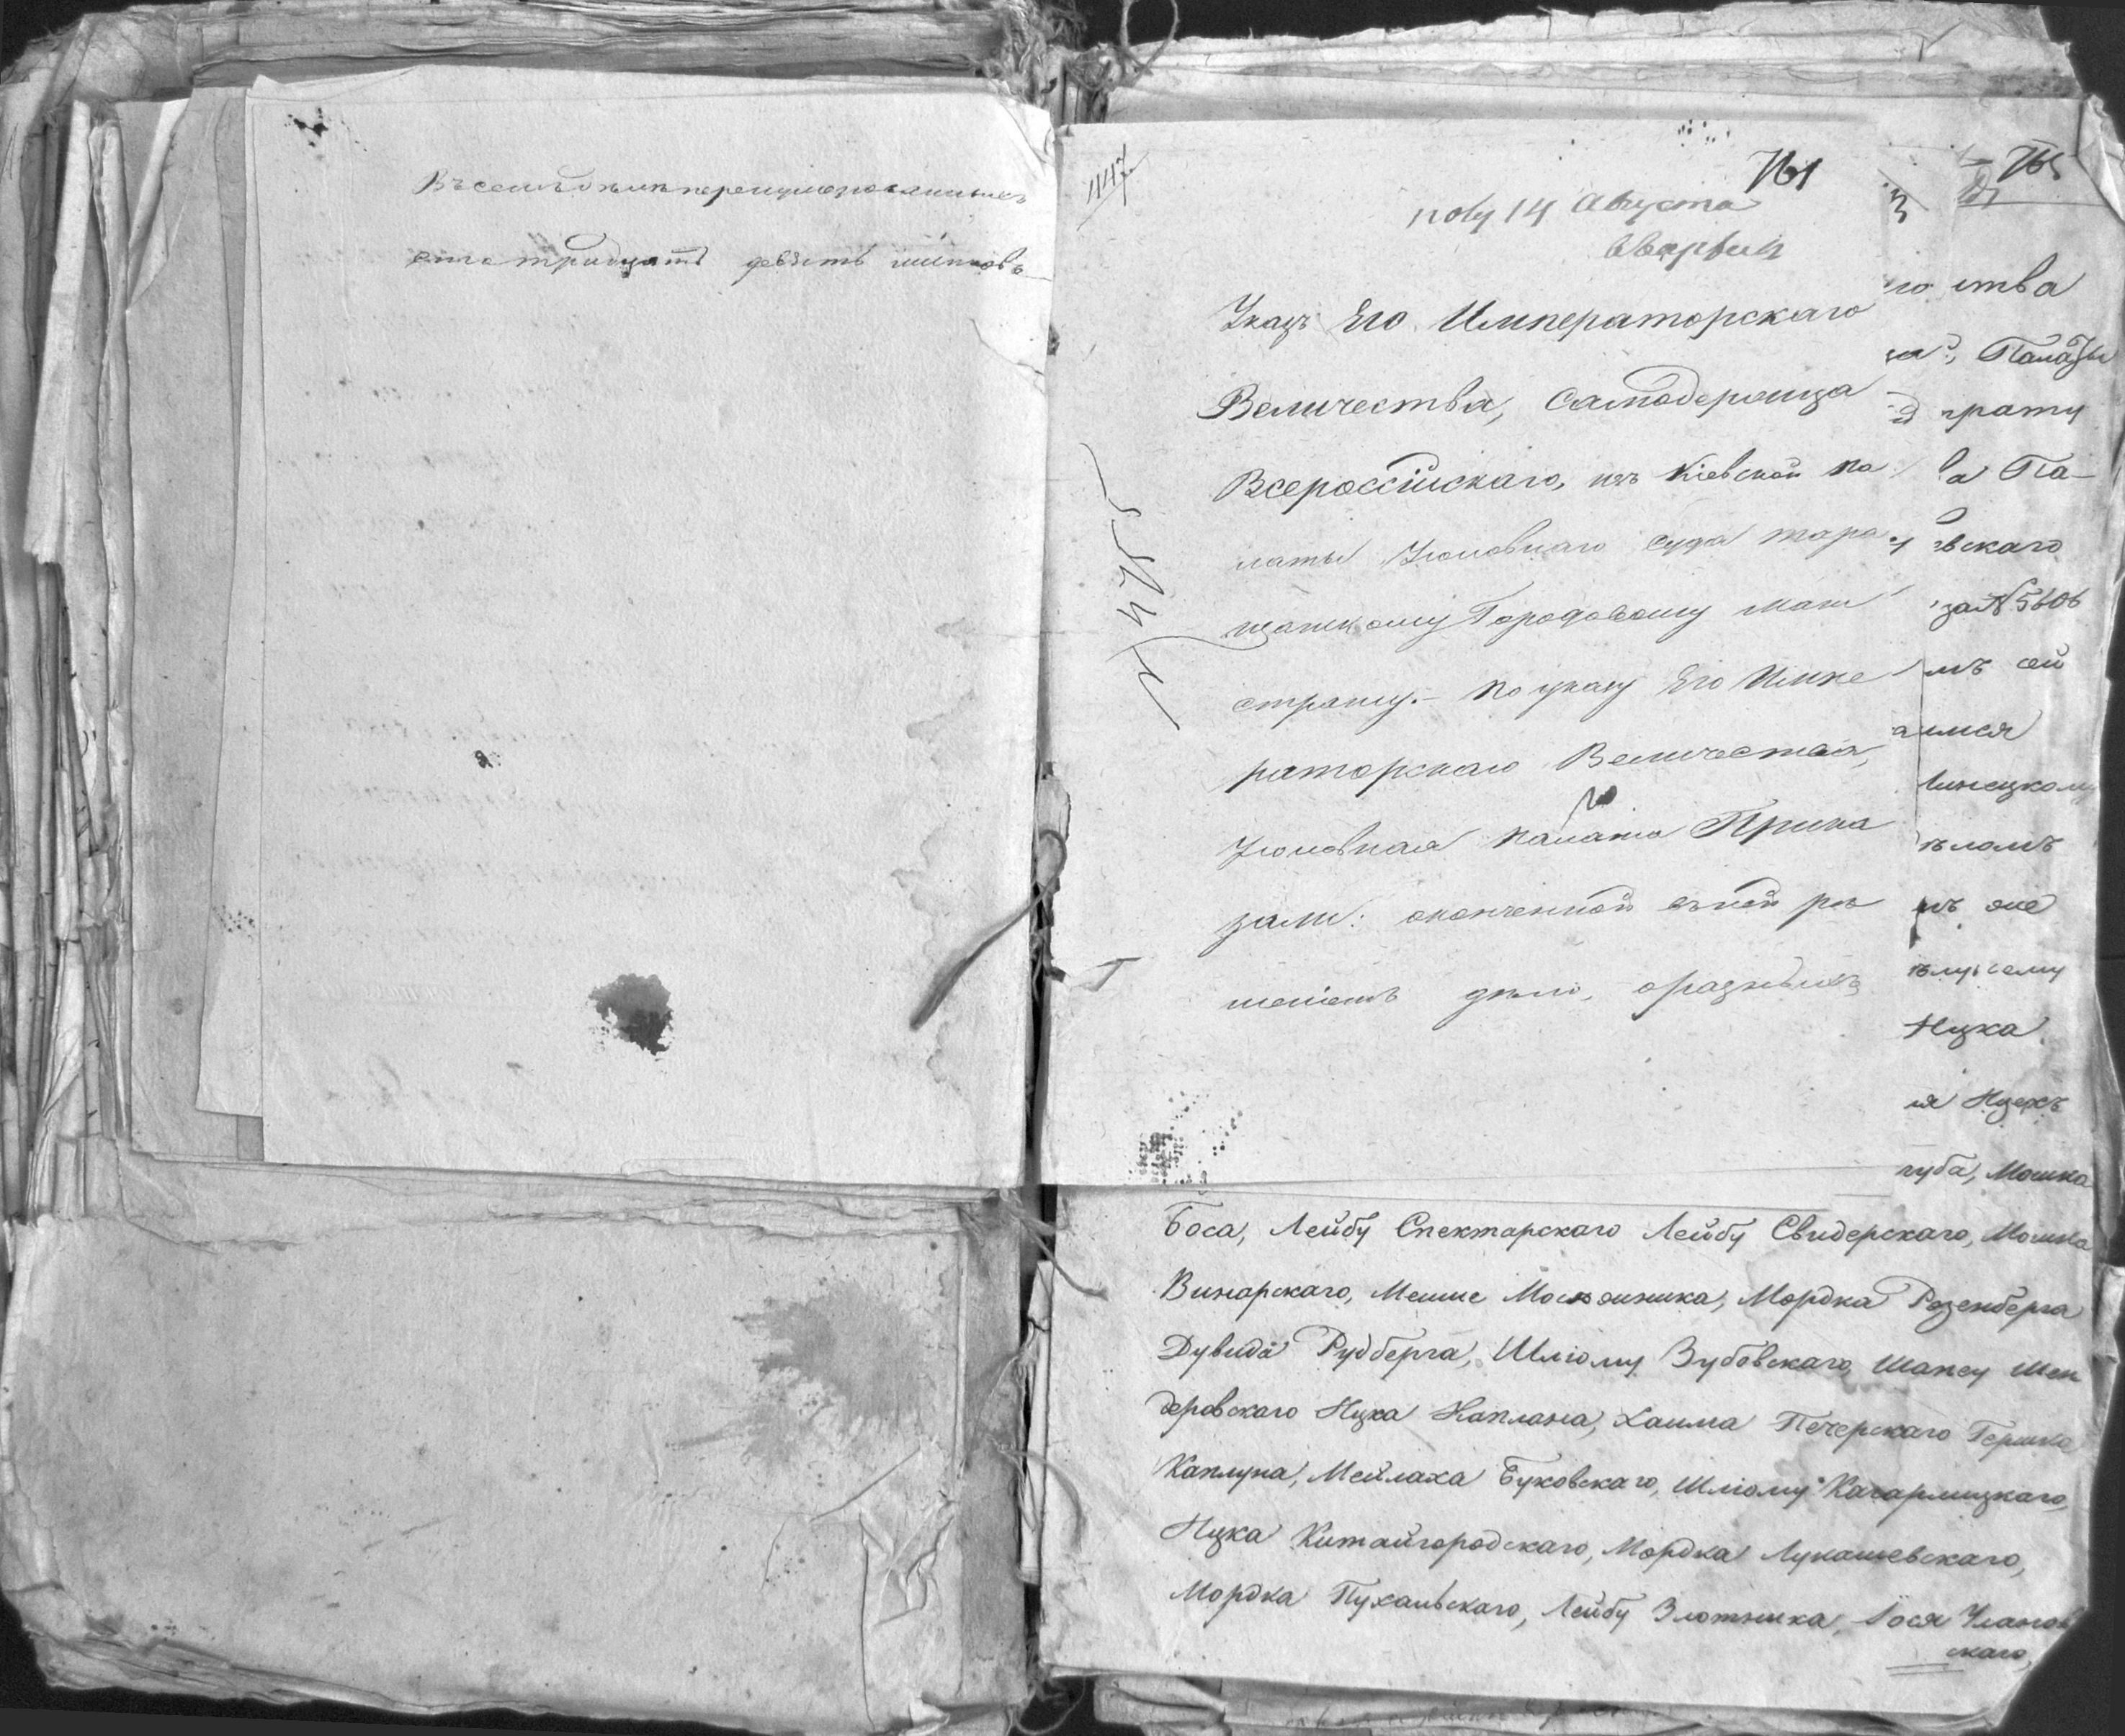 Въ семъ дѣлѣ перенумерованныхъ
сто тридцать девять листовъ
1147
761
765
полу 14 Августа
Указъ Его Императорскаго
Величества, Самодержца
Всероссійскаго, изъ Кіевской Па
латы Уголовнаго Суда Тара
щанскому Городовому Маги
страту. – По указу Его Импе
раторскаго Величества,
Уголовная Палата Прика
зали: оконченной въ ней рѣ
шеніемъ дѣло, о разныхъ
ства
Палаты
трату
ва Па-
вскаго
за № 5606
мъ сей
аимся
Линецкому
ѣломъ
мъ же
Ицка
ля Ицекъ
губа, Мошка
Боса, Лейбу Спектарскаго Лейбу Свидерскаго, Мошка
Винарскаго, Мешие Мосяжника, Мордка Розенберга
Дувида Рудберга, Шліому Зубовскаго, Шапсу Шен
деровскаго Ицка Каплана, Хаима Печерскаго Гершка
Каплуна, Мейлаха Буковскаго, Шліому Кагарлицкаго,
Ицка Китайгородскаго, Мордка Лукашевскаго,
Мордка Пухальскаго, Лейбу Злотника, Іося Уланов
скаго,